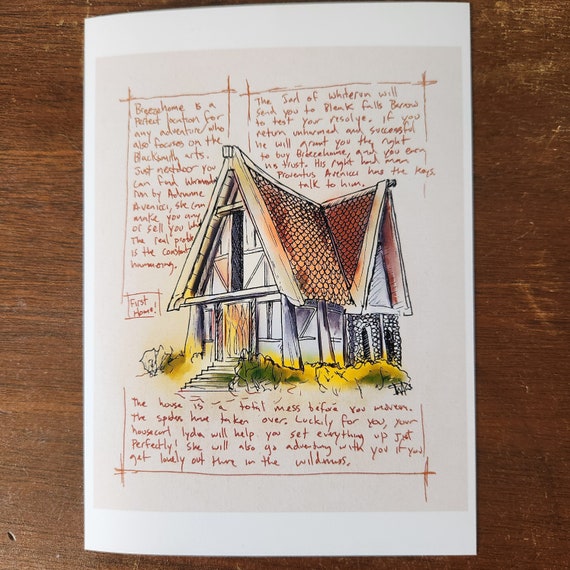 Breezehome is a
Perfect location for
any adventurer who
also focuses on the
Blacksmith arts.
Just nextdoor you
can find
run by Adrianne
Avenicci, she can
make you any
or sell you
The real
is the constant
hammering.
The Jarl of Whiterun will
send you to Bleak falls Barrow
to test your resolve. if you
return unharmed and successful
he will grant you the right
to buy Breezehome, and you earn
his trust. His right hand man
Proventus Avenicci has the keys,
talk to him.
First
Home!
The house is a total mess before you movein.
The spiders have taken over. Luckily for you, your
housecarl lydia will help you set everything up just
Perfectly! She will also go adventuring with you if you
get lonely out there in the wilderness.